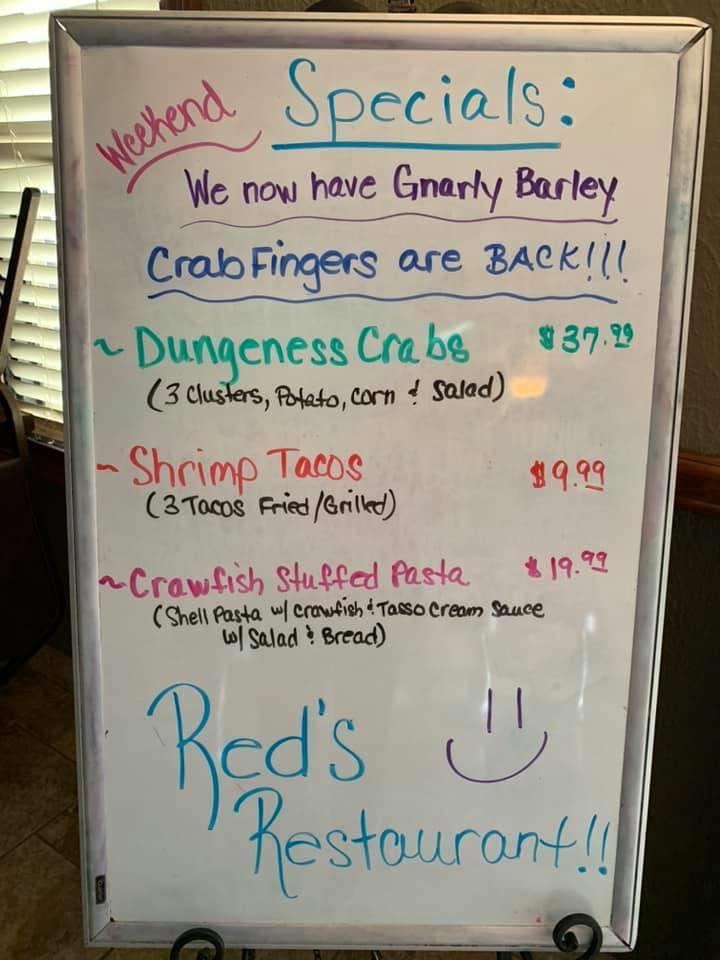 Weekend Specials:
We now have Gnarly Barley
Crab Fingers are BACK!!!
~ Dungeness Crabs $37.99
(3 Clusters, Potato, Corn & Salad)
~ Shrimp Tacos $9.99
(3 Tacos Fried/Grilled)
~ Crawfish Stuffed Pasta $19.99
(Shell Pasta w/ Crawfish & Tasso Cream Sauce
w/ Salad & Bread)
Red's
Restaurant!!